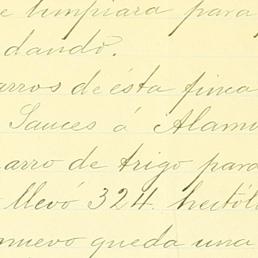 e limpiara para
dando.
arros de ésta finca
Sauces á Alam
arro de trigo para
llevó 324 hectól
nuevo queda una